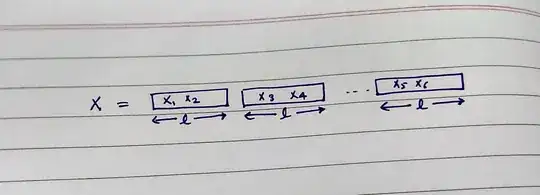 X = x₁ x₂ x₃ x₄ ... x₅ x₆
l l l